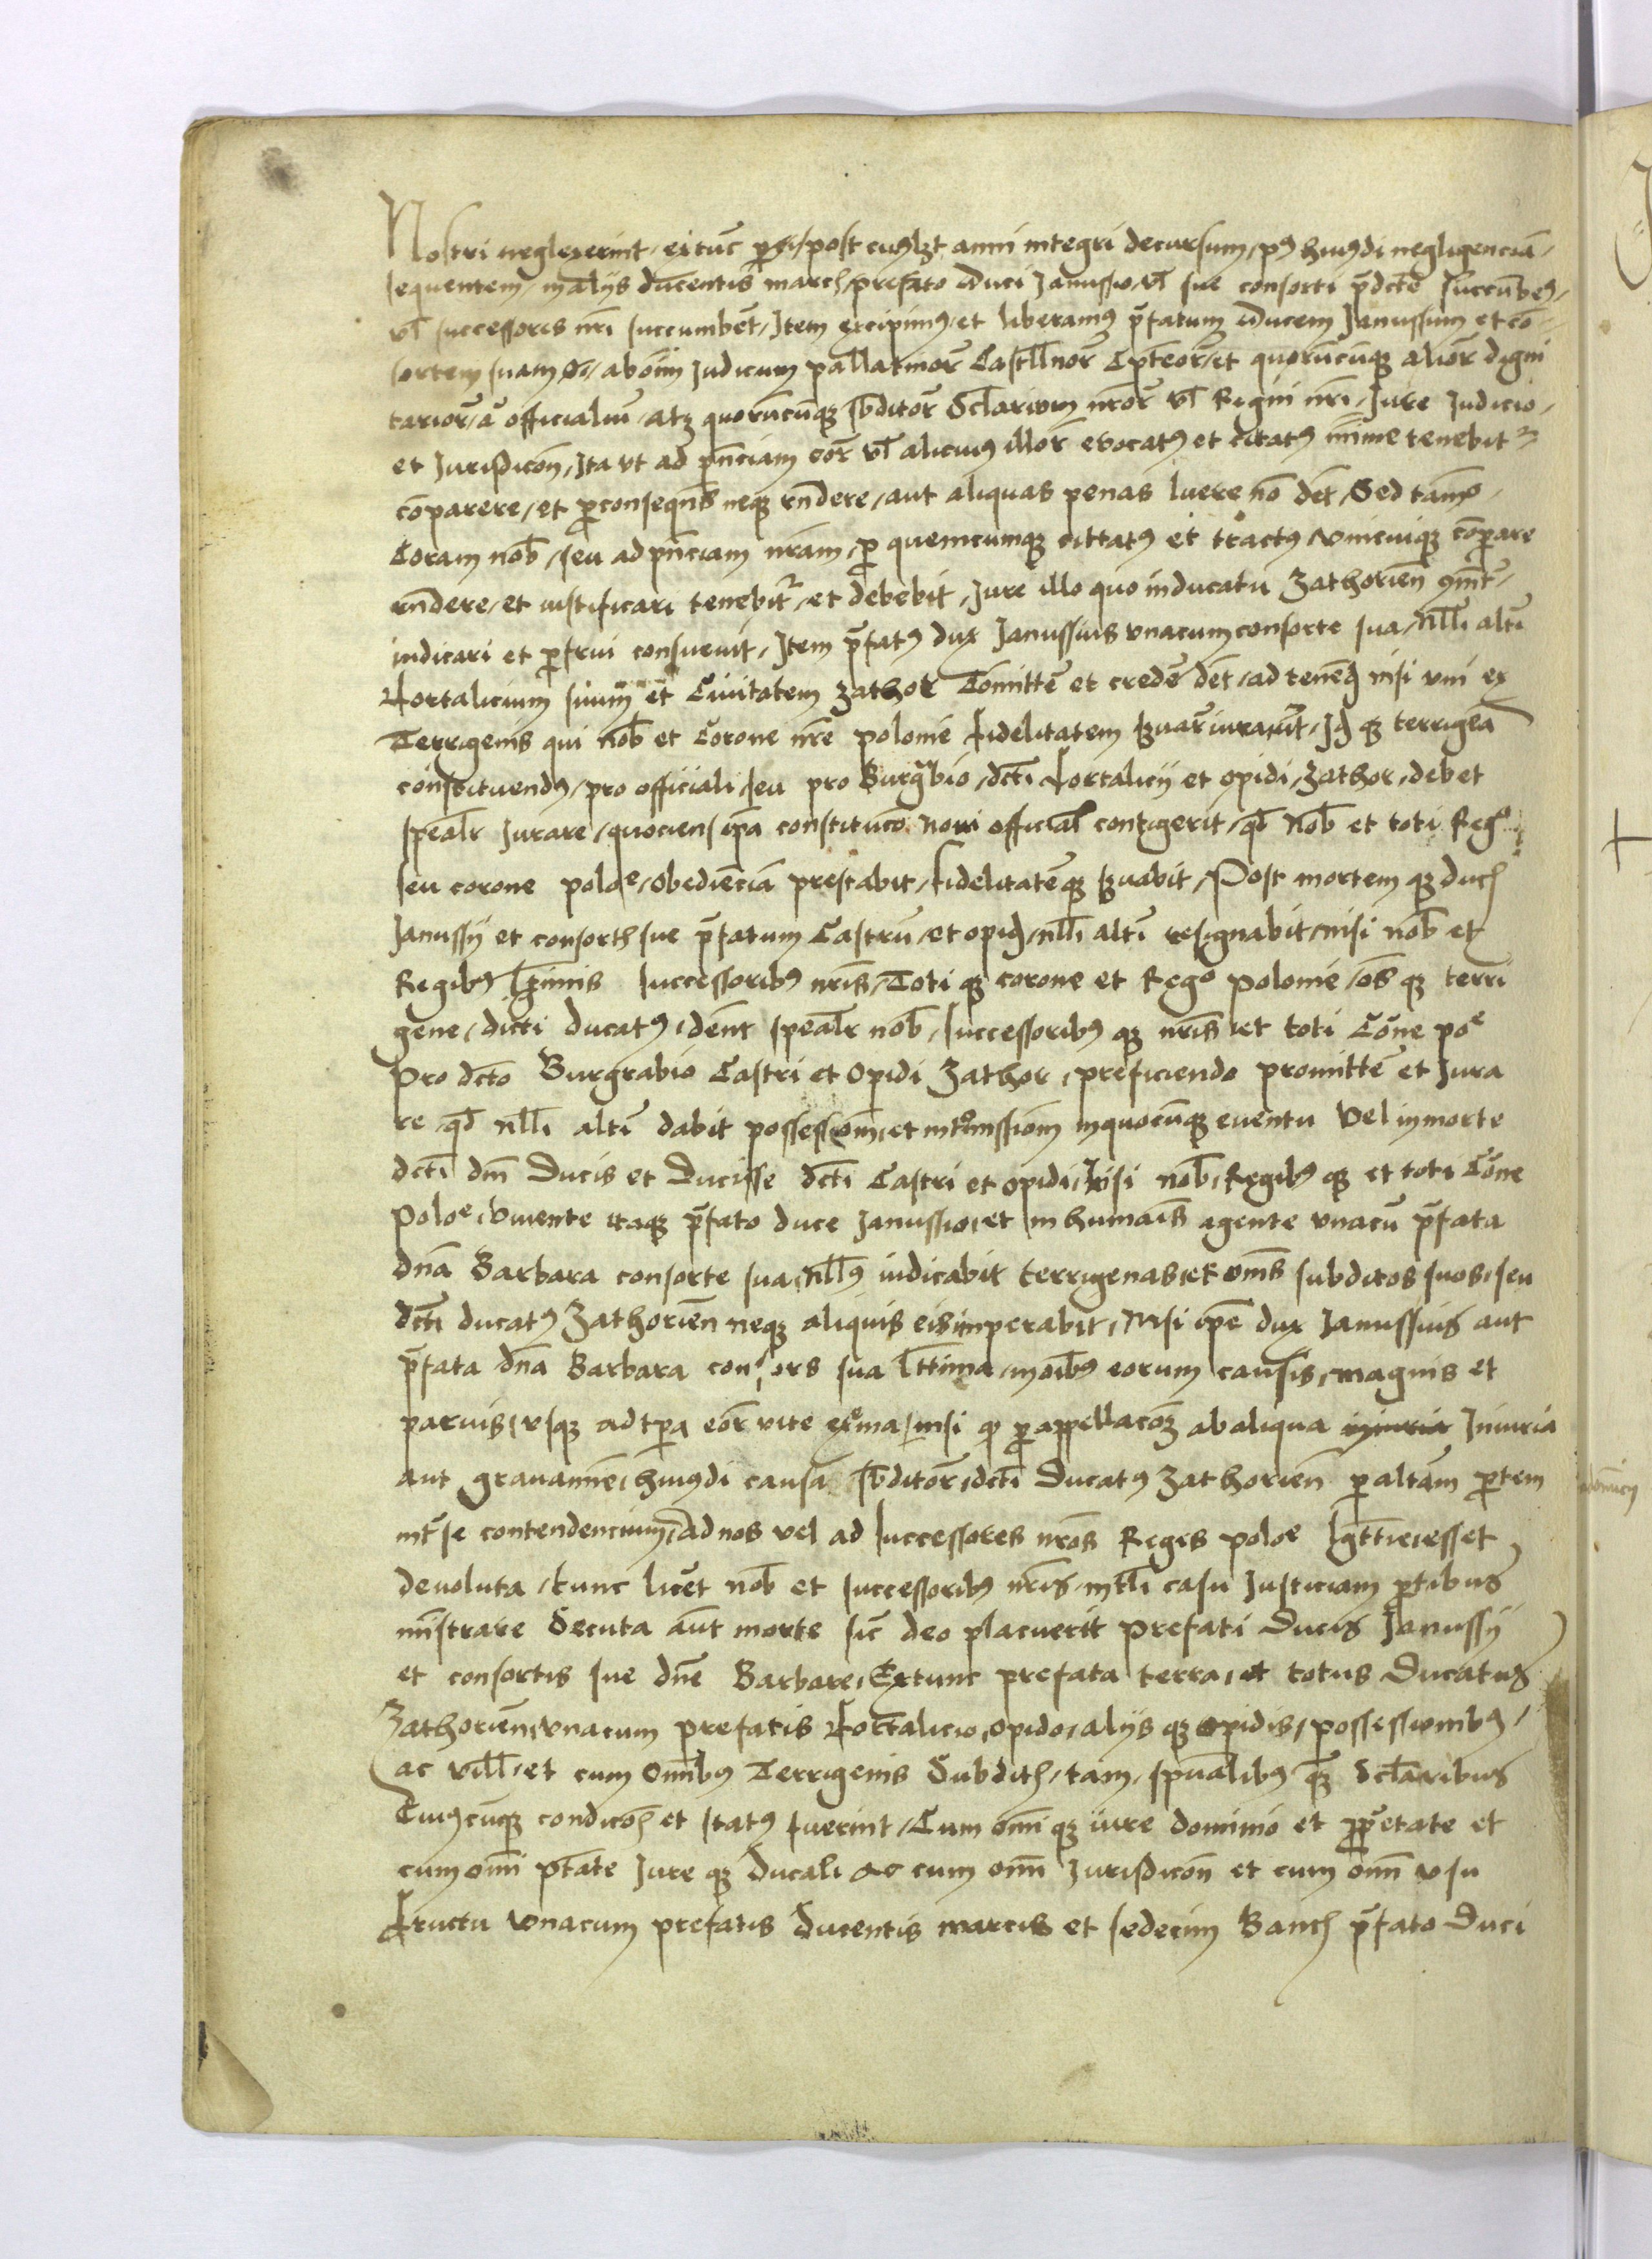 Nostri neglexerint, extuc post cuiuslibet anni integri decursum, huiusdi negligenciā
sequentem, in alijs ducentis march, prefato Duci Janussio, vl sue consorti p̄dcte succūbem9,
vl successores nri succumbēt, Item excipim9, et liberam9 p̄fatum Ducem Janussium et cō-
sortem suam ab oim Judicum pallatinor Castllnor Cpteor et quorūcūq3 alior digni
tarior, officialiū, atq3 quorūcūq3 sbditor Sclariom nror vl Regni nri, Jure Judicio,
et Jurisdicon, Ita vt ad pn̄ciam eor vl alicui9 illor evocat9 et citat9 mīme tenebit
cōparere, et p consequēs neq3 rn̄dere, aut aliquas penas luere nō det, Sed tam
Coram nob, seu ad pn̄ciam nram, p quemcumq3 cittat9 et tract9, vnicuiq3 cōpare
rn̄dere, et iustificari tenebit, et debebit, Jure illo quo in ducatu Zathorien
iudicari et pfrui consuevit, Item p̄fat9 dux Janussius vnacum consorte sua, nlli altī
Fortalicium suum et Civitatem Zathor Comittē et credē det, ad tenēd nisi vni ex
Terrigenis qui nob et Corone nre polonie fidelitatem suar iuraūt, Id q3 terrigēa
constituend9, pro officiali, seu pro Burgbio, dcti Fortalicij et opidi, Zathor, debet
spealr Jurare, quociens ipa constituco novi official contigerit, qd Nob et toti Regº
seu corone poloe, obediēciā prestabit, fidelitatēq3 suabit, Post mortem q3 duch
Janussij et consorth sue p̄fatum Castrū, et opid, nlli altī resignabit, nisi nob et
Regib9 lgimis successorib9 nris, Toti q3 corone et Regº polonie, os q3 terri
gene, dicti ducat9, dent spealr nob, successorib9 q3 nris et toti Cone poe
Pro dcto Burgrabio Castri et Opidi Zathor, preficiendo promittē et Jura
re, qd nlli altī dabit possession, et intromission in quocūq3 eventu vel in morte
dcti dni Ducis et Ducisse dcti Castri et opidi, Nisi nob, Regib9 q3 et toti Cone
Poloe, Vivente itaq3 p̄fato duce Janussio, et in humais agente vnacū p̄fata
dna Barbara consorte sua, nll9 iudicabit terrigenas, et oms subditos suos, seu
dcti ducat9 Zathorien neq3 aliquis eis imperabit, Nisi ipe dux Janussius aut
p̄fata dna Barbara consors sua lttima, in oib9 eorum causis, magnis et
parvis, vsq3 ad tpa eor vite exma, nisi q p appellacō3 ab aliqua Iniuria
aut gravamine, hui9di causa sbditor, dcti Ducat9 Zathorien p altam ptem
int se contendencium, ad nos vel ad successores nros Reges poloe lgttie, esset
devoluta, tunc licet nob et successorib9 nris, in tli casu Justiciam ptibus
mīstrare Secuta aut morte sic deo placuerit prefati Ducis Janussij
et consortis sue dne Barbare, Extunc prefata terra, et totus Ducatus
Zathorien, vnacum prefatis Fortalicio, opido, alijs q3 opidis, possessionib9,
ac vill, et cum Omibus Terrigenis Subdith, tam, spualibus q3 Sclaribus
Cui9cūq3 condicoh et stat9 fuerint, Cum omi q3 iure dominio et pprietate et
cum omi ptate Jure q3 Ducali ac cum omi Jurisdicon et cum omi vsu
Fructu Vnacum prefatis Ducentis marcis et sedecim Banch p̄fato Duci